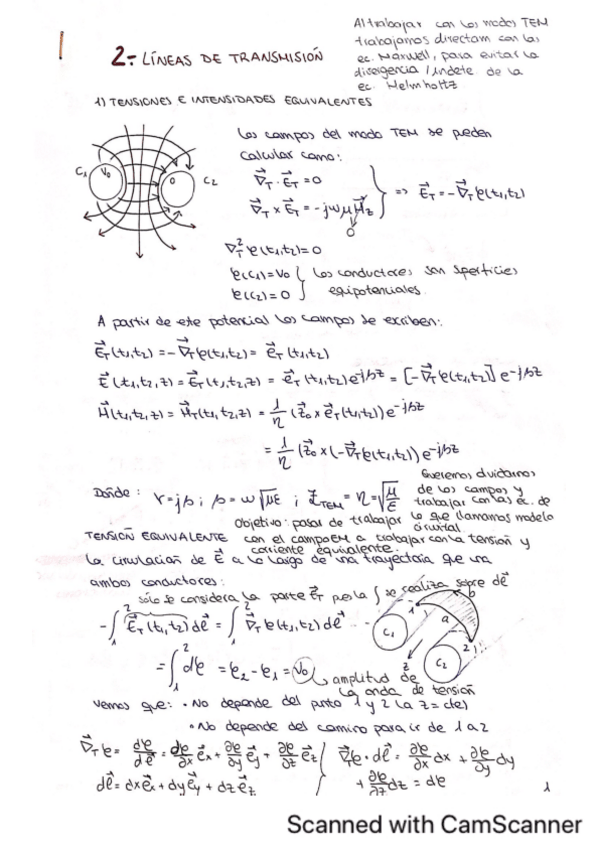 Al trabajar con los modos TEM
trabajamos directam con las
ec. Maxwell, para evitar la
divergencia / indete. de la
ec. Helmholtz
2.- LÍNEAS DE TRANSMISIÓN
1) TENSIONES E INTENSIDADES EQUIVALENTES
Los campos del modo TEM se pueden
calcular como:
C₁ V₀ 0 C₂
∇⃗_T · E⃗_T = 0
∇⃗_T × E⃗_T = -jωμH⃗_z
0
=> E⃗_T = -∇⃗_T φ(t₁,t₂)
∇²_T φ(t₁,t₂) = 0
φ(C₁) = V₀
φ(C₂) = 0
Los conductores son sperficies
eqipotenciales.
A partir de este potencial los campos se escriben:
E⃗_T(t₁,t₂) = -∇⃗_T φ(t₁,t₂) = e⃗_T(t₁,t₂)
E⃗(t₁,t₂,z) = E⃗_T(t₁,t₂,z) = e⃗_T(t₁,t₂)e^-jβz = [-∇⃗_T φ(t₁,t₂)] e^-jβz
H⃗(t₁,t₂,z) = H⃗_T(t₁,t₂,z) = 1/η (z⃗₀ × e⃗_T(t₁,t₂)) e^-jβz
= 1/η (z⃗₀ × (-∇⃗_T φ(t₁,t₂)) e^-jβz
Donde: γ = jβ ; β = ω√με ; Z_TEM = η = √μ/ε
Queremos olvidarnos
de los campos y
trabajar con las ec. de
lo que llamamos modelo
circuital
Objetivo: pasar de trabajar
con el campo EM a trabajar con la tensión y
corriente equivalente.
TENSIÓN EQUIVALENTE
La circulación de E⃗ a lo largo de una trayectoria que una
ambos conductores:
sólo se considera la parte E⃗_T pq la ∫ se realiza sobre dl⃗
-∫₁² E⃗_T(t₁,t₂) dl⃗ = ∫₁² ∇⃗_T φ(t₁,t₂) dl⃗
= ∫₁² dφ = φ₂ - φ₁ = V₀
amplitud de
la onda de tensión
C₁ 1 a b 2 C₂ z
Vemos que: · No depende del punto 1 y 2 (a z = cte)
· No depende del camino para ir de 1 a 2
∇⃗_T φ = dφ/dl⃗ = ∂φ/∂x e⃗_x + ∂φ/∂y e⃗_y + ∂φ/∂z e⃗_z
dl⃗ = dx e⃗_x + dy e⃗_y + dz e⃗_z
∇⃗_T φ · dl⃗ = ∂φ/∂x dx + ∂φ/∂y dy
+ ∂φ/∂z dz = dφ
1
Scanned with CamScanner